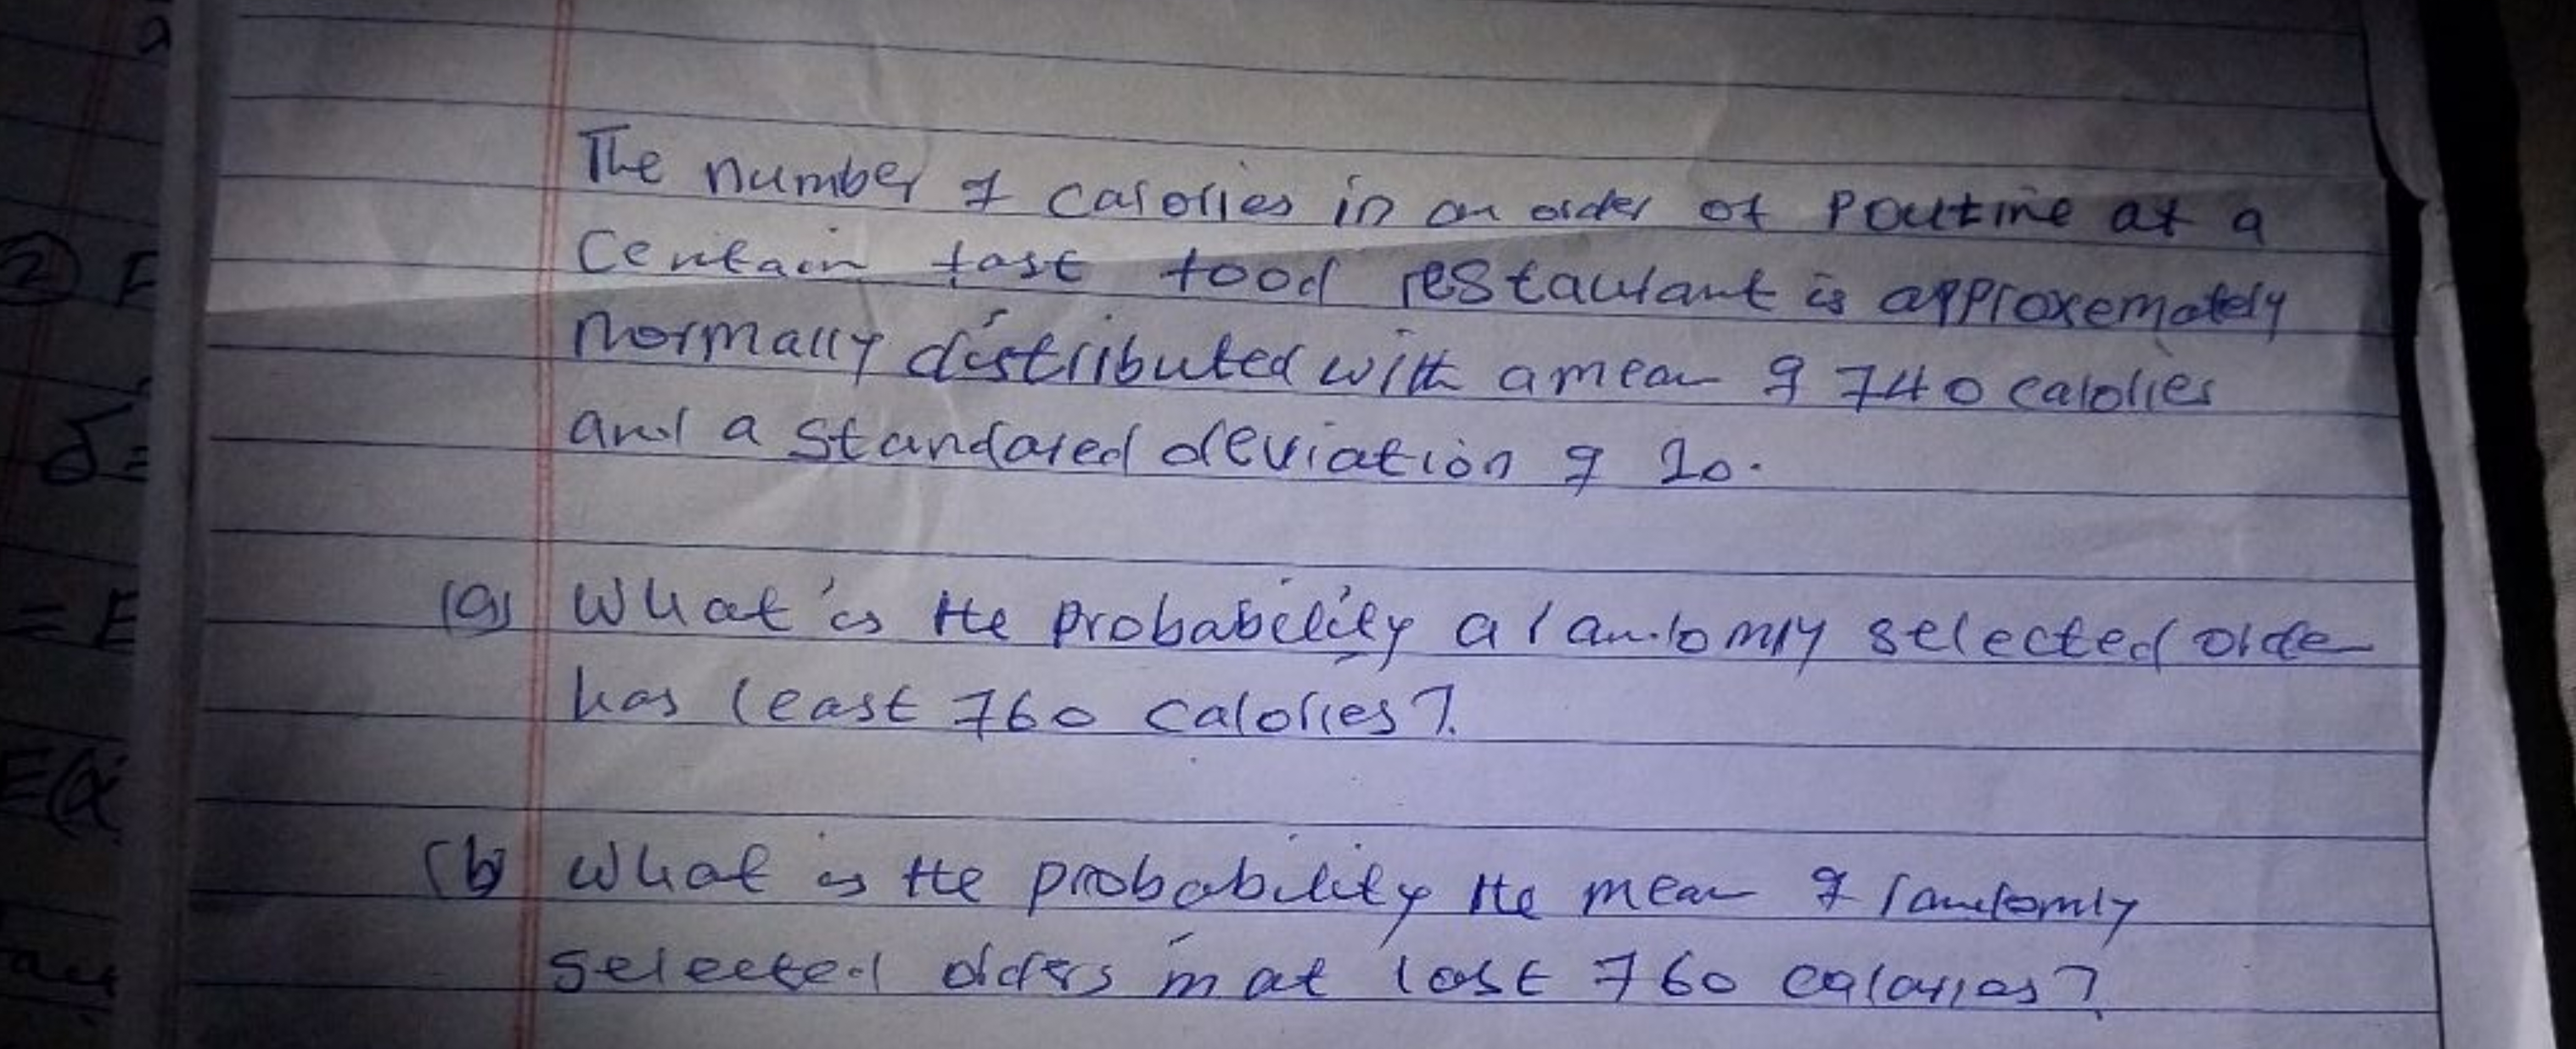 The number of calories in an order of poutine at a
Certain fast food restaurant is approxemately
normally distributed with a mean of 740 calories
and a standared deviation of 20.
(a) What is the probability a randomly selected orde
has least 760 calories?
(b) What is the probability the mean of randomly
selected orders in at last 760 calories?
2
δ=
= E
E(X